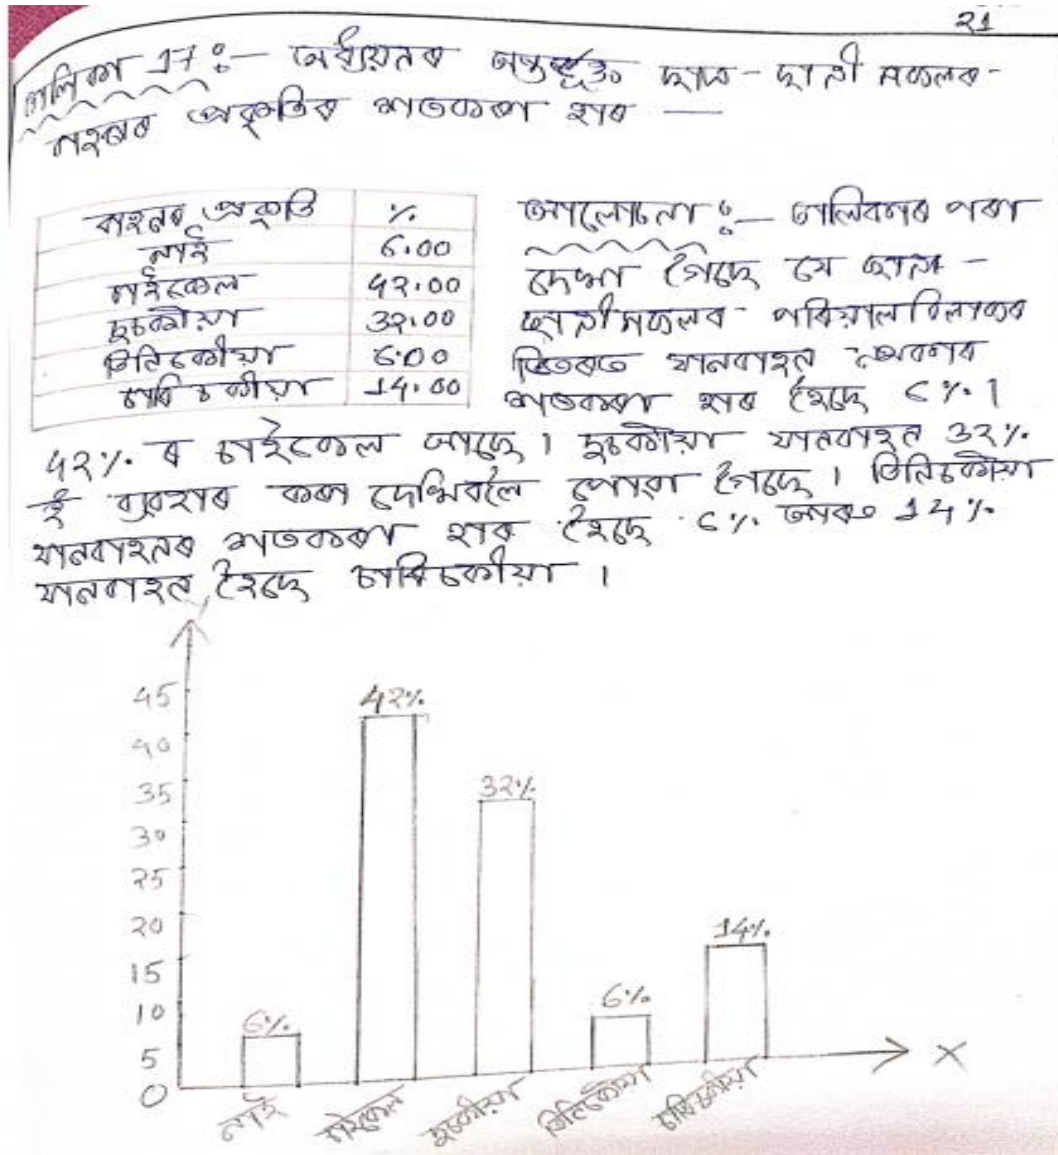 21
তালিকা 17 :— অধ্যয়নৰ অন্তৰ্ভুক্ত ছাত্ৰ - ছাত্ৰী সকলৰ -
বাহনৰ প্ৰকৃতিৰ শতকৰা হাৰ —
বাহনৰ প্ৰকৃতি %.
নাই 6.00
চাইকেল 42.00
দুচকীয়া 32.00
তিনিচকীয়া 6.00
চাৰি চকীয়া 14.00
আলোচনা :— তালিকাৰ পৰা
দেখা গৈছে যে ছাত্ৰ -
ছাত্ৰীসকলৰ - পৰিয়ালবিলাকৰ
ভিতৰত যানবাহন নথকাৰ
শতকৰা হাৰ হৈছে 6%।
42%. ৰ চাইকেল আছে। দুচকীয়া যানবাহন 32%.
ই ব্যৱহাৰ কৰা দেখিবলৈ পোৱা গৈছে। তিনিচকীয়া
যানবাহনৰ শতকৰা হাৰ হৈছে 6%. আৰু 14%
যানবাহন হৈছে চাৰিচকীয়া।
45
40
35
30
25
20
15
10
5
0
6%
42%
32%
6%
14%
X
নাই চাইকেল দুচকীয়া তিনিচকীয়া চাৰিচকীয়া